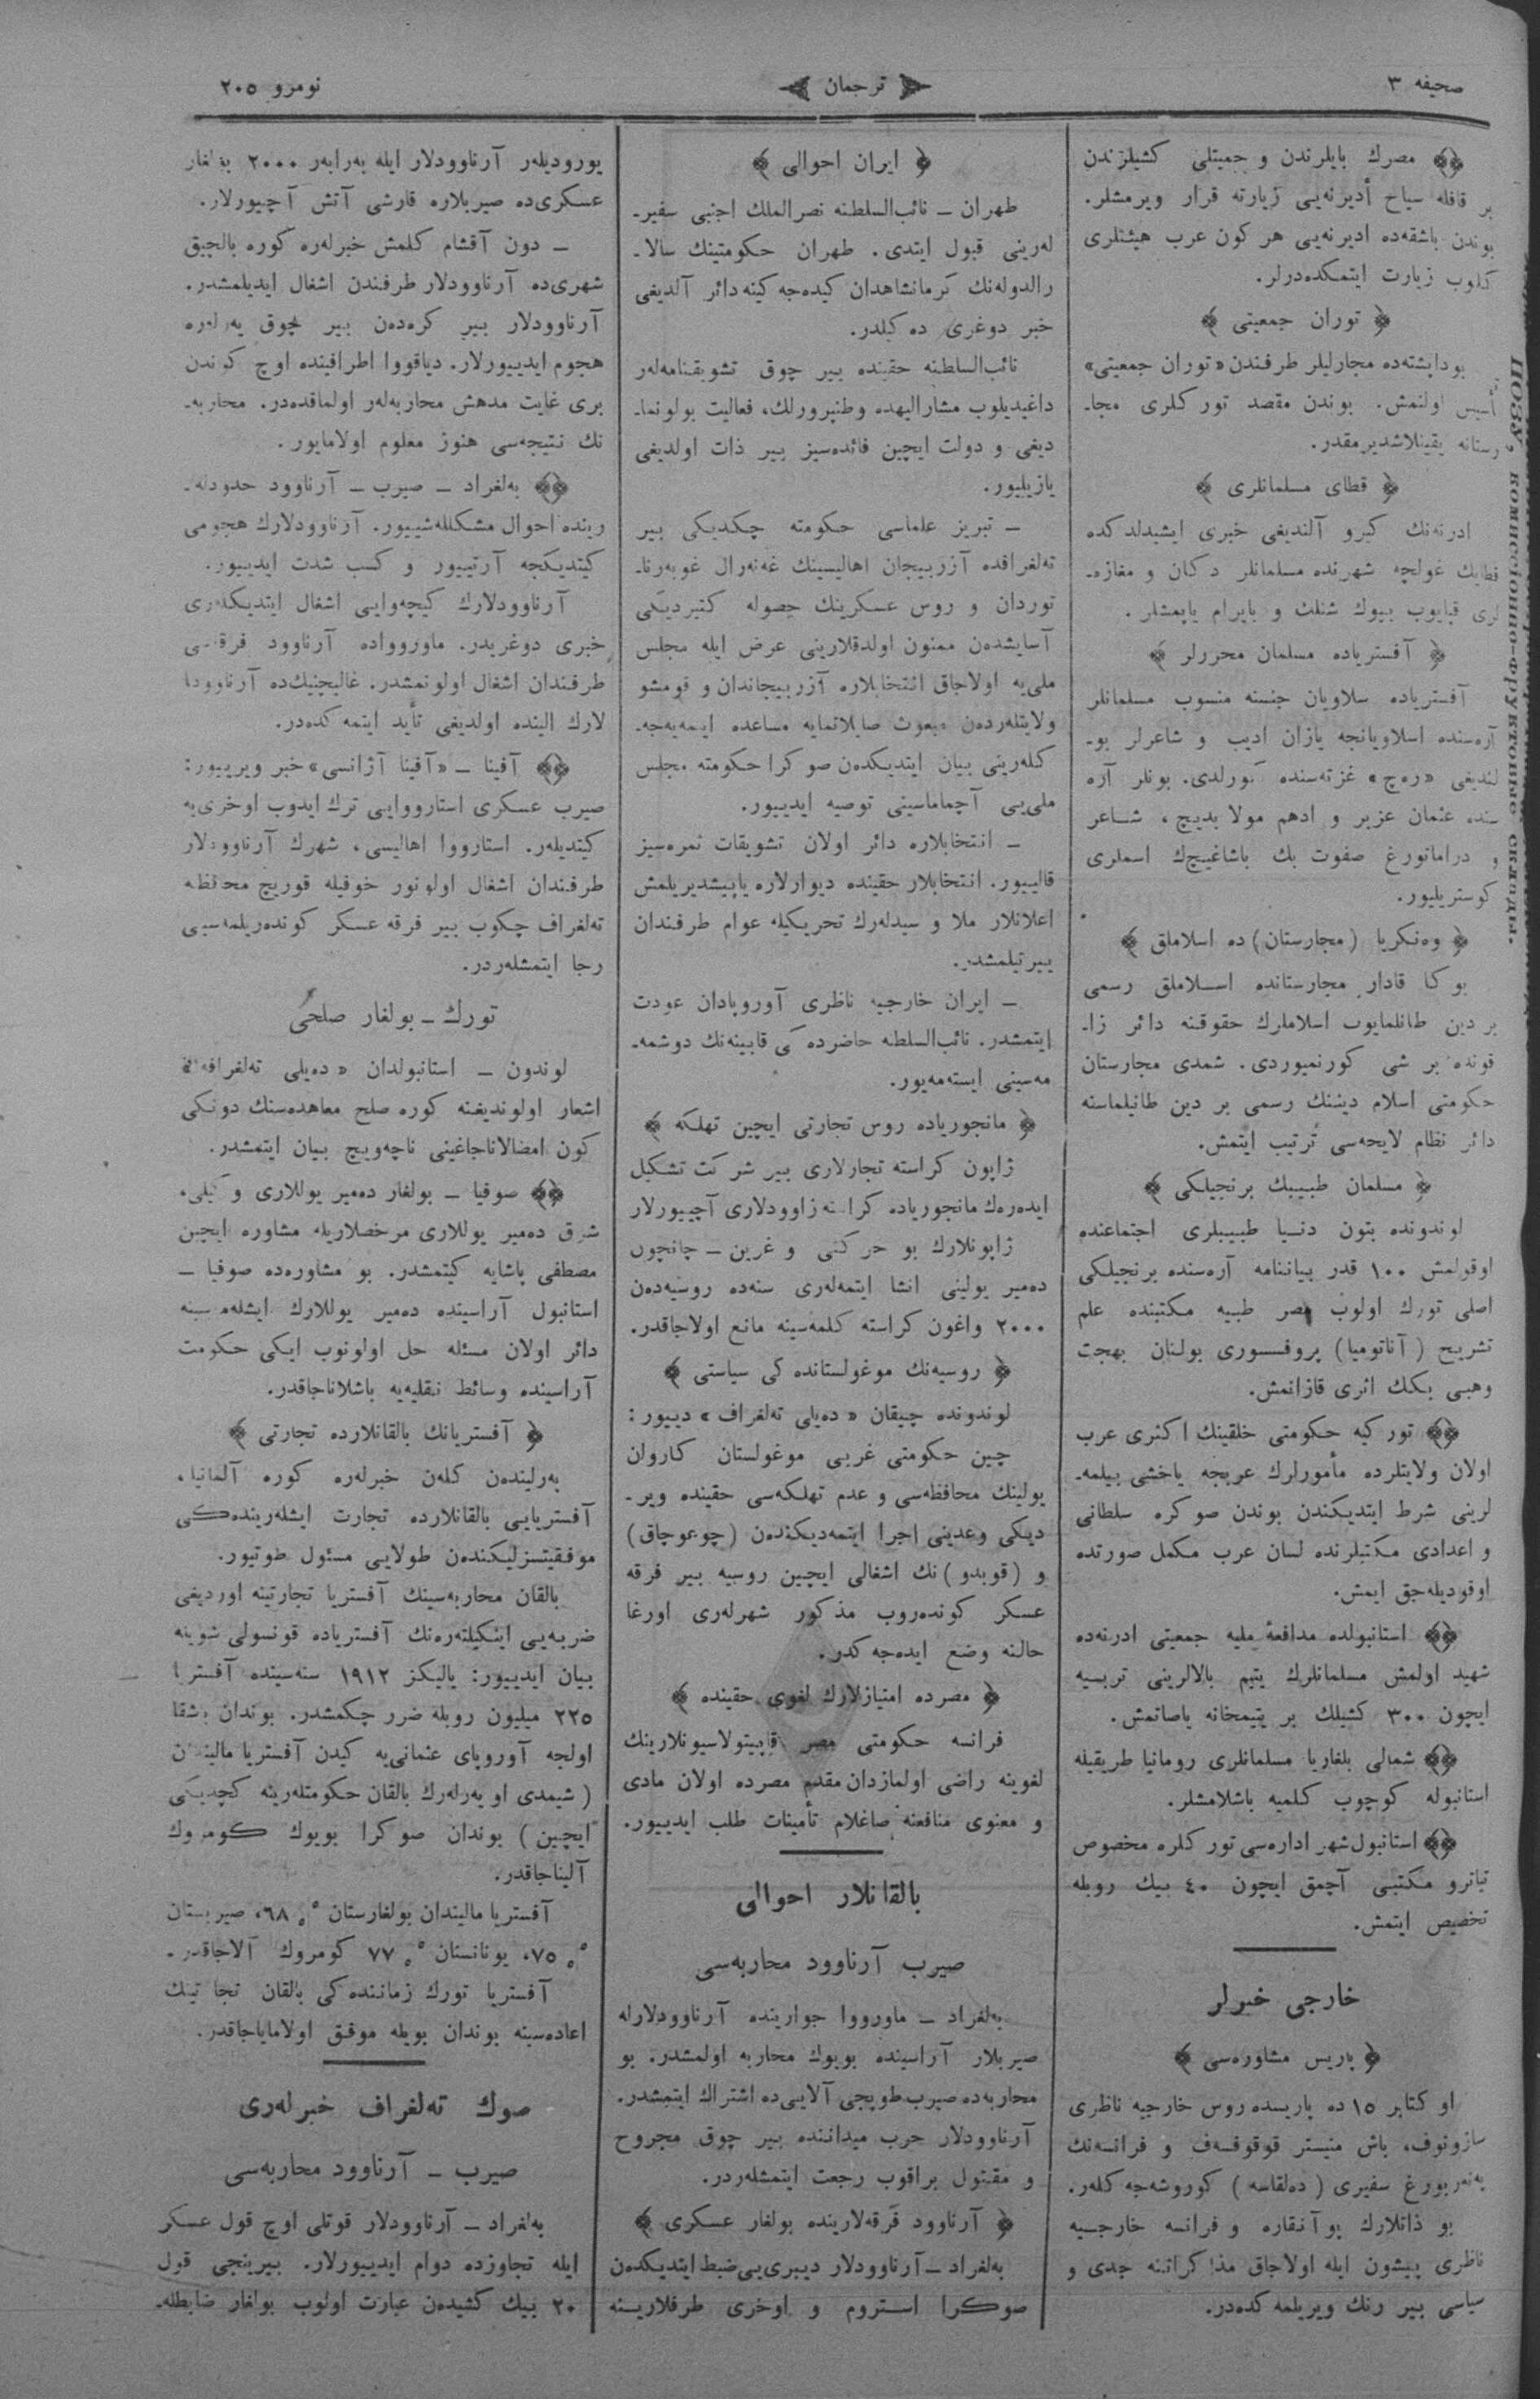 صحیفه ٣
ترجمان
نومرو ٢٠٥
مصرك بایلرندن و جمیتلی كشیلرندن
بر قافله سیاح أدیرنه‌یی زیارته قرار ویرمشلر.
بوندن باشقه‌ده ادیرنه‌یی هر كون عرب هیئتلری
كلوب زیارت ایتمكده‌درلر.
﴿ توران جمعیتی ﴾
بوداپشته‌ده مجارلیلر طرفندن «توران جمعیتی»
تأسیس اولنمش. بوندن مقصد توركلری مجا-
رستانه یقینلاشدیرمقدر.
﴿ قطای مسلمانلری ﴾
ادرنه‌نك كیرو آلندیغی خبری ایشیدلدكده
قطایك غولجه شهرنده مسلمانلر دكان و مغازه-
لری قپایوب بیوك شنلك و بایرام یاپمشلر.
﴿ آفستریاده مسلمان محررلر ﴾
آفستریاده سلاویان جنسنه منسوب مسلمانلر
آره‌سنده اسلاویانجه یازان ادیب و شاعرلر بو-
لندیغی «ره‌چ» غزته‌سنده كورلدی. بونلر آره
سنده عثمان عزیر و ادهم مولا بدیچ، شاعر
و دراماتورغ صفوت بك باشاغیچ‌ك اسملری
كوستریلیور.
﴿ وه‌نكریا (مجارستان) ده اسلاملق ﴾
بو كا قادار مجارستانده اسلاملق رسمی
بر دین طانلمایوب اسلاملرك حقوقنه دائر زا-
قونده بر شی كورنمیوردی. شمدی مجارستان
حكومتی اسلام دیننك رسمی بر دین طانیلماسنه
دائر نظام لایحه‌سی ترتیب ایتمش.
﴿ مسلمان طبیبك برنجیلكی ﴾
لوندونده بتون دنیا طبیبلری اجتماعنده
اوقولمش ١٠٠ قدر بیاننامه آره‌سنده برنجیلكی
اصلی تورك اولوب مصر طبیه مكتبنده علم
تشریح (آناتومیا) پروفسوری بولنان بهجت
وهبی بكك اثری قازانمش.
توركیه حكومتی خلقینك اكثری عرب
اولان ولایتلرده مأمورلرك عربجه یاخشی بیلمه-
لرینی شرط ایتدیكندن بوندن صوكره سلطانی
و اعدادی مكتبلرنده لسان عرب مكمل صورتده
اوقودیله‌جق ایمش.
استانبولده مدافعهٔ ملیه جمعیتی ادرنه‌ده
شهید اولمش مسلمانلرك یتیم بالالرینی تربیه
ایچون ٣٠٠ كشیلك بر یتیمخانه یاصاتمش.
شمالی بلغاریا مسلمانلری رومانیا طریقیله
استانبوله كوچوب كلمیه باشلامشلر.
استانبول شهر اداره‌سی توركلره مخصوص
تیاترو مكتبی آچمق ایچون ٤٠ بیك روبله
تخصیص ایتمش.
خارجی خبرلر
﴿ پاریس مشاوره‌سی ﴾
اوكتابر ١٥ ده پاریسده روس خارجیه ناظری
سازونوف، باش منیستر قوقوفسه‌ف و فرانسه‌نك
په‌ته‌ربورغ سفیری (ده‌لقاسه) كوروشه‌جه‌كلر.
بو ذاتلارك پوآنقاره و فرانسه خارجیه
ناظری پیشون ایله اولاجاق مذاكراتنه جدی و
سیاسی بیر رنك ویریلمه‌كده‌در.
﴿ ایران احوالی ﴾
طهران – نائب‌السلطنه نصرالملك اجنبی سفیر-
له‌رینی قبول ایتدی. طهران حكومتینك سالا-
رالدوله‌نك كرمانشاهدان كیده‌جه‌كینه دائر آلدیغی
خبر دوغری ده‌كلدر.
نائب‌السلطنه حقنده بیر چوق تشویقنامه‌لر
داغیدیلوب مشارالیهده وطنپرورلك، فعالیت بولونما-
دیغی و دولت ایچین فائده‌سیز بیر ذات اولدیغی
یازیلیور.
– تبریز علماسی حكومته چكدیكی بیر
ته‌لغرافده آزربیجان اهالیسینك غه‌نه‌رال غوبه‌رنا-
توردان و روس عسكرینك حصوله كتیردیكی
آسایشدن ممنون اولدقلارینی عرض ایله مجلس
ملی‌یه اولاجاق انتخابلاره آزربیجاندان و قومشو
ولایتله‌ردن مبعوث صایلانمایه مساعده ایمه‌یه‌جه-
كله‌رینی بیان ایتدیكدن صوكرا حكومته مجلس
ملی‌یی آچماماسینی توصیه ایدییور.
– انتخابلاره دائر اولان تشویقات ثمره‌سیز
قالییور. انتخابلار حقینده دیوارلاره یاپیشدیریلمش
اعلانلار ملا و سیدله‌رك تحریكیله عوام طرفندان
ییرتیلمشدر.
– ایران خارجیه ناظری آوروپادان عودت
ایتمشدر. نائب‌السلطنه حاضرده‌كی قابینه‌نك دوشمه-
مه‌سینی ایسته‌مه‌یور.
﴿ مانجوریاده روس تجارتی ایچین تهلكه ﴾
ژاپون كراسته تجارلاری بیر شركت تشكیل
ایده‌ره‌ك مانجوریاده كراسته زاوودلاری آچییورلار
ژاپونلارك بو حركتی و غرین – چانچون
ده‌میر یولینی انشا ایتمه‌له‌ری سنه‌ده روسیه‌دن
٢٠٠٠ واغون كراسته كلمه‌سینه مانع اولاجاقدر.
﴿ روسیه‌نك موغولستانده‌كی سیاستی ﴾
لوندونده چیقان «ده‌یلی ته‌لغراف» دییور:
چین حكومتی غربی موغولستان كاروان
یولینك محافظه‌سی و عدم تهلكه‌سی حقینده ویر-
دیكی وعدینی اجرا ایتمه‌دیكندن (چوغوچاق)
و (قوبدو) نك اشغالی ایچین روسیه بیر فرقه
عسكر كونده‌روب مذكور شهرله‌ری اورغا
حالنه وضع ایده‌جه‌كدر.
﴿ مصرده امتیازلارك لغوی حقینده ﴾
فرانسه حكومتی مصر قاپیتولاسیونلارینك
لغوینه راضی اولمازدان مقدم مصرده اولان مادی
و معنوی منافعنه صاغلام تأمینات طلب ایدییور.
بالقانلار احوالی
صیرب آرناوود محاربه‌سی
به‌لغراد – ماورووا جوارینده آرناوودلارله
صیربلار آراسینده بویوك محاربه اولمشدر. بو
محاربه‌ده صیرب طوپچی آلایی‌ده اشتراك ایتمشدر.
آرناوودلار حرب میداننده بیر چوق مجروح
و مقتول براقوب رجعت ایتمشله‌ردر.
﴿ آرناوود فرقه‌لارینده بولغار عسكری ﴾
به‌لغراد – آرناوودلار دیبری‌یی ضبط ایتدیكدن
صوكرا استروم و اوخری طرفلارینه
یورودیله‌ر آرناوودلار ایله به‌رابه‌ر ٢٠٠٠ بولغار
عسكری‌ده صیربلاره قارشی آتش آچیورلار.
– دون آقشام كلمش خبرله‌ره كوره بالچیق
شهری‌ده آرناوودلار طرفندن اشغال ایدیلمشدر.
آرناوودلار بیر كره‌دن بیر چوق یه‌رله‌ره
هجوم ایدییورلار. دیاقووا اطرافینده اوچ كوندن
بری غایت مدهش محاربه‌لر اولماقده‌در. محاربه-
نك نتیجه‌سی هنوز معلوم اولامایور.
به‌لغراد – صیرب – آرناوود حدودله-
رینده احوال مشكلله‌شییور. آرناوودلارك هجومی
كیتدیكجه آرتییور و كسب شدت ایدییور.
آرناوودلارك كیچه‌وایی اشغال ایتدیكله‌ری
خبری دوغریدر. ماورووواده آرناوود فرقه‌سی
طرفندان اشغال اولونمشدر. غالیچنیك‌ده آرناوود
لارك الینده اولدیغی تأید ایتمه‌كده‌در.
آفینا – «آفینا آژانسی» خبر ویرییور:
صیرب عسكری استارووایی ترك ایدوب اوخری‌یه
كیتدیله‌ر. استارووا اهالیسی، شهرك آرناوودلار
طرفندان اشغال اولونور خوفیله قوریچ محافظه
ته‌لغراف چكوب بیر فرقه عسكر كونده‌ریلمه‌سی
رجا ایتمشله‌ردر.
تورك – بولغار صلحی
لوندون – استانبولدان «ده‌یلی ته‌لغراف»ه
اشعار اولوندیغنه كوره صلح معاهده‌سنك دونكی
كون امضالاناجاغینی ناچه‌ویچ بیان ایتمشدر.
صوفیا – بولغار ده‌میر یوللاری وكیلی،
شرق ده‌میر یوللاری مرخصلاریله مشاوره ایچین
مصطفی پاشایه كیتمشدر. بو مشاوره‌ده صوفیا –
استانبول آراسینده ده‌میر یوللارك ایشله‌مه‌سینه
دائر اولان مسئله حل اولونوب ایكی حكومت
آراسینده وسائط نقلیه‌یه باشلاناجاقدر.
﴿ آفستریانك بالقانلارده تجارتی ﴾
به‌رلیندن كلن خبرله‌ره كوره آلمانیا،
آفستریایی بالقانلارده تجارت ایشله‌رینده‌كی
موفقیتسزلیكندن طولایی مسئول طوتیور.
بالقان محاربه‌سینك آفستریا تجارتینه اوردیغی
ضربه‌یی اینكیلته‌ره‌نك آفستریاده قونسولی شویله
بیان ایدییور: یالیكز ١٩١٢ سنه‌سینده آفستریا
٢٢٥ میلیون روبله ضرر چكمشدر. بوندان باشقا
اولجه آوروپای عثمانی‌یه كیدن آفستریا مالیندان
(شیمدی او یه‌رله‌رك بالقان حكومتله‌رینه كچدیكی
ایچین) بوندان صوكرا بویوك كومروك
آلیناجاقدر.
آفستریا مالیندان بولغارستان ٪ ٦٨، صیربستان
٪ ٧٥، یونانستان ٪ ٧٧ كومروك آلاجاقدر.
آفستریا تورك زماننده‌كی بالقان تجارتینك
اعاده‌سینه بوندان بویله موفق اولامایاجاقدر.
صوك ته‌لغراف خبرله‌ری
صیرب – آرناوود محاربه‌سی
به‌لغراد – آرناوودلار قوتلی اوچ قول عسكر
ایله تجاوزده دوام ایدییورلار. بیرینجی قول
٢٠ بیك كشیدن عبارت اولوب بولغار ضابطله-